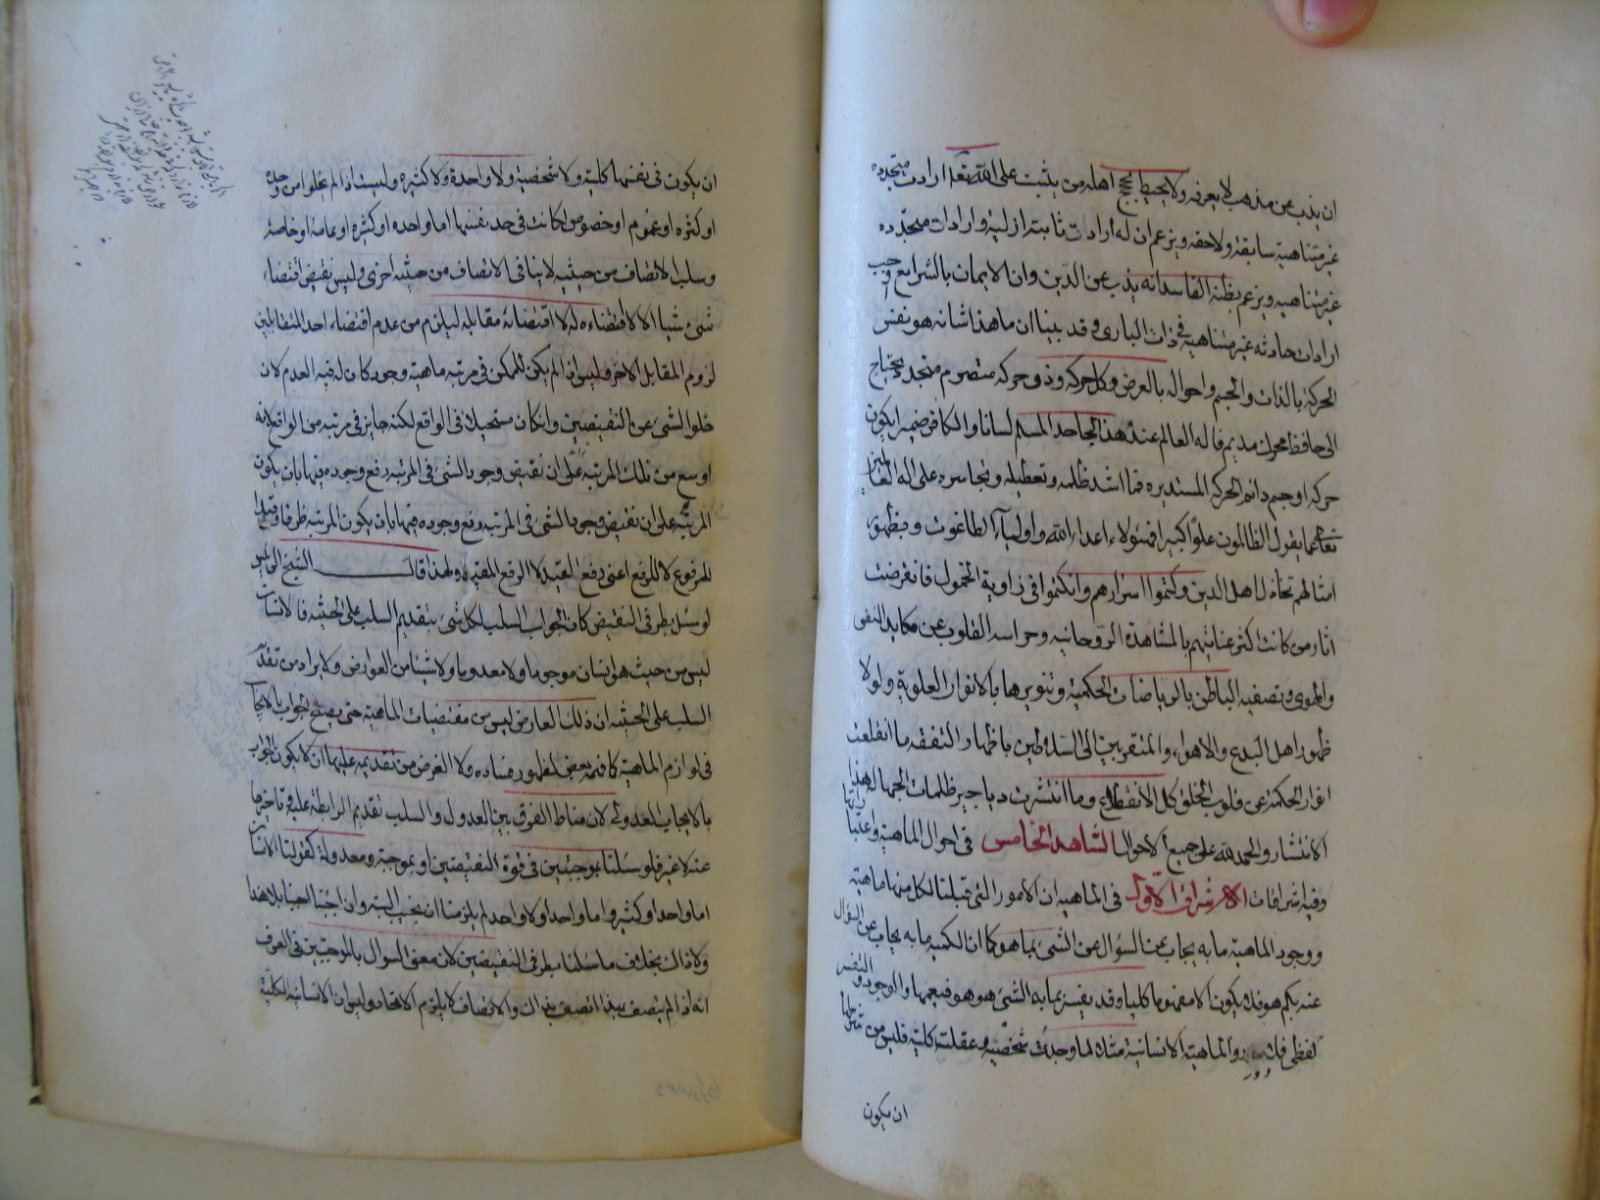 ان يذب عن مذهب لا يعرفه ولا يحيط بحجج اهله من يثبت على الله تعالى ارادات متجدده
غير متناهية سابقة ولاحقه ويزعم ان له ارادات ثابته ازلية وارادات متجدده
غير متناهيه ويزعم بظنه الفاسد انه يذب عن الدين وان الايمان بالشرايع وجب
ارادات حادثه غير متناهية فى ذات البارى وقد بينا ان ما هذا شانه هو نفس
الحركة بالذات والجسم واحواله بالعرض وكل حركه وذو حركه متصرم متجدد يحتاج
الى حافظ محرك مديم فاله العالم عند هذا الجاحد المسلم لسانا والكافر ضميرا يكون
حركه او جسم دائم الحركه المستديره فما اشد ظلمه وتعطيله وتجاسره على اله العالمين
تعالى عما يقول الظالمون علوا كبيرا فهؤلاء اعداء الله واولياء الطاغوت وبظهور
امثالهم تحاذل اهل الدين وكتموا اسرارهم وانكتموا فى زاوية الخمول فانقرضت
اثار من كانت اكثر عنايتهم بالمشاهدة الروحانيه وحراسه القلوب عن مكايد النفس
والهوى وتصفيه الباطن بالرياضات الحكمية وتنويرها بالانوار العلوية ولولا
ظهور اهل البدع والاهواء والمتقربين الى السلاطين باظهار التفقه ما انقلعت
انوار الحكمة عن قلوب الخلق كل الانقطاع وما انتشرت دياجير ظلمات الجهاله هذا
الانتشار والحمد لله على جميع الاحوال الشاهد الخامس فى احوال الماهية واعتباراتها
وفيه اشراقات الاشراق الاول فى الماهيه ان الامور التى قبلنا لكل منها ماهيته
ووجود الماهية ما به يجاب عن السؤال عن الشئ بما هو كما ان الكميه ما به يجاب عن السؤال
عنه بكم هو فلا يكون الا مفهوما كليا وقد يفسر بما به الشئ هو هو فيعمها والوجود والتفسير
لفظى فلا دور والماهية الانسانية مثلا لما وجدت شخصيه وعقلت كلية فليس من شرطها
ان يكون
ان يكون فى نفسها كلية ولا شخصية ولا واحدة ولا كثيره وليست اذا لم يخلوا من وحده
او كثره او عموم او خصوص لكانت فى حد نفسها اما واحده او كثيره او عامة او خاصة
وسلب الاتصاف من حيثيه لا ينافى الاتصاف من حيثيه اخرى وليس نقيض اقتضاء
شئ شيئا الا لا اقتضاءه له لا اقتضائه مقابله ليلزم من عدم اقتضاء احد المتقابلين
لزوم المقابل الاخر وليس اذا لم يكن للممكن فى مرتبه ماهيته وجود كان له فيه العدم لان
خلوا الشئ عن النقيضين وان كان مستحيلا فى الواقع لكنه جايز فى مرتبه من الواقع لانه
اوسع من تلك المرتبه على ان نقيض وجود الشئ فى المرتبه رفع وجوده فيها بان يكون
المرتبه على ان نقيض وجود الشئ فى المرتبه رفع وجوده فيها بان يكون المرتبه ظرفا وقيدا
للمرفوع لا للرفع اعنى رفع المقيد لا الرفع المقيد ولهذا قال الشيخ الرئيس
لو سئل بطرفى النقيض كان الجواب السلب لكل شئ بتقديم السلب على الحيثيه فالانسان
ليس من حيث هو انسان موجودا ولا معدوما ولا شيئا من العوارض ولا يراد من تقديم
السلب على الحيثيه ان ذلك العارض ليس من مقتضيات الماهية حتى يصح الجواب بالايجاب
فى لوازم الماهية كما فهمه بعض لظهور فساده ولا الغرض من تقديمه عليها ان لا يكون الجواب
بالايجاب المعدولى لان مناط الفرق بين العدول والسلب تقديم الرابطة عليه وتاخيرها
عنه لا غير فلو سئلنا بموجبتين فى قوة النقيضين او بموجبة ومعدولة كقولنا الانسان
اما واحد او كثير واما واحد او لا واحد لم يلزمنا ان نجيب البته وان اجبنا اجبنا بلا هذا
ولا ذاك بخلاف ما سئلنا بطرفى النقيضين لان معنى السوال بالموجبتين فى العرف
انه اذا لم يتصف بهذا اتصف بذاك والاتصاف لا يلزم الاتحاد وليس ان الانسانيه الكلية